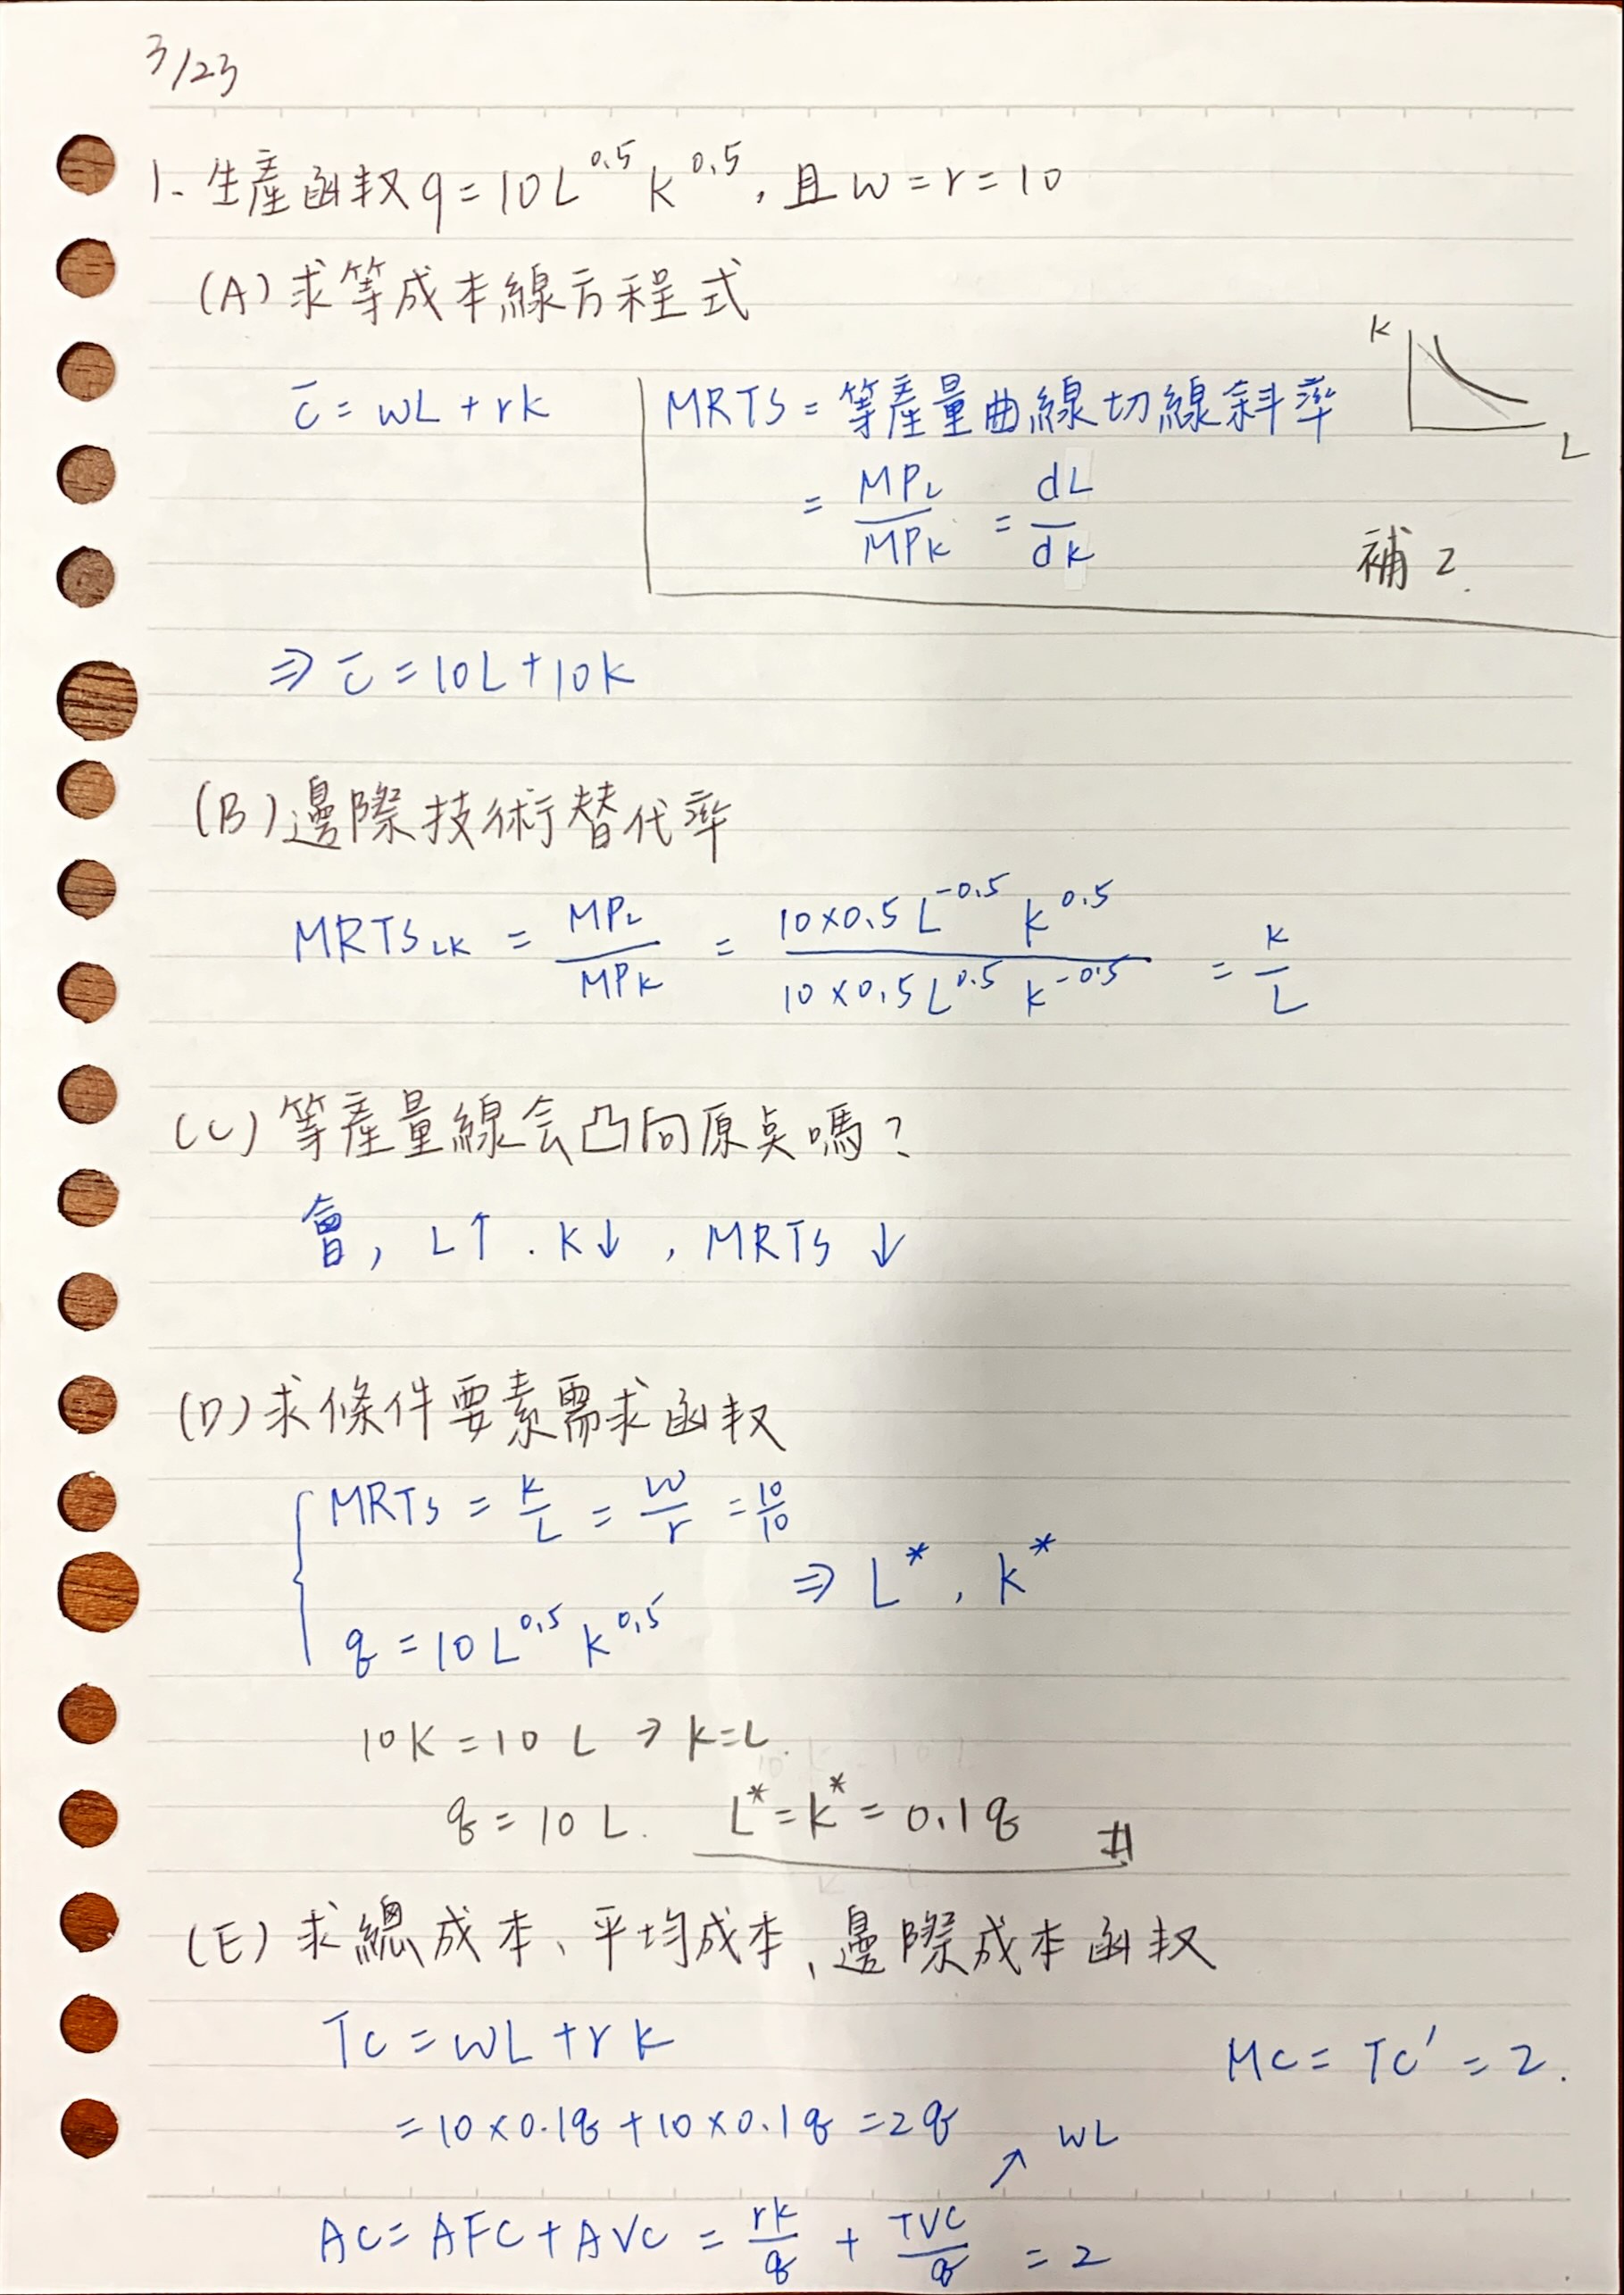 3/23
1. 生產函数 q = 10L^0.5 K^0.5, 且 w = r = 10
(A) 求等成本線方程式
K
L
c̄ = wL + rK
MRTS = 等產量曲線切線斜率
= MP_L / MP_K = dL / dK
補 2.
⇒ c̄ = 10L + 10K
(B) 邊際技術替代率
MRTS_LK = MP_L / MP_K = 10×0.5 L^-0.5 K^0.5 / 10×0.5 L^0.5 K^-0.5 = K / L
(C) 等產量線会凸向原点嗎?
會, L↑. K↓, MRTS ↓
(D) 求條件要素需求函数
MRTS = K/L = w/r = 10/10
⇒ L*, K*
q = 10 L^0.5 K^0.5
10K = 10 L → K = L.
q = 10 L. L* = K* = 0.1q #
(E) 求總成本、平均成本、邊際成本函数
TC = wL + r K
MC = TC' = 2.
= 10 × 0.1q + 10 × 0.1q = 2q
↗ wL
AC = AFC + AVC = rK/q + TVC/q = 2